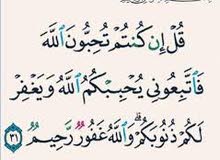 قُلۡ إِن كُنتُمۡ تُحِبُّونَ ٱللَّهَ
فَٱتَّبِعُونِي يُحۡبِبۡكُمُ ٱللَّهُ وَيَغۡفِرۡ
لَكُمۡ ذُنُوبَكُمۡۚ وَٱللَّهُ غَفُورٞ رَّحِيمٞ ٣١